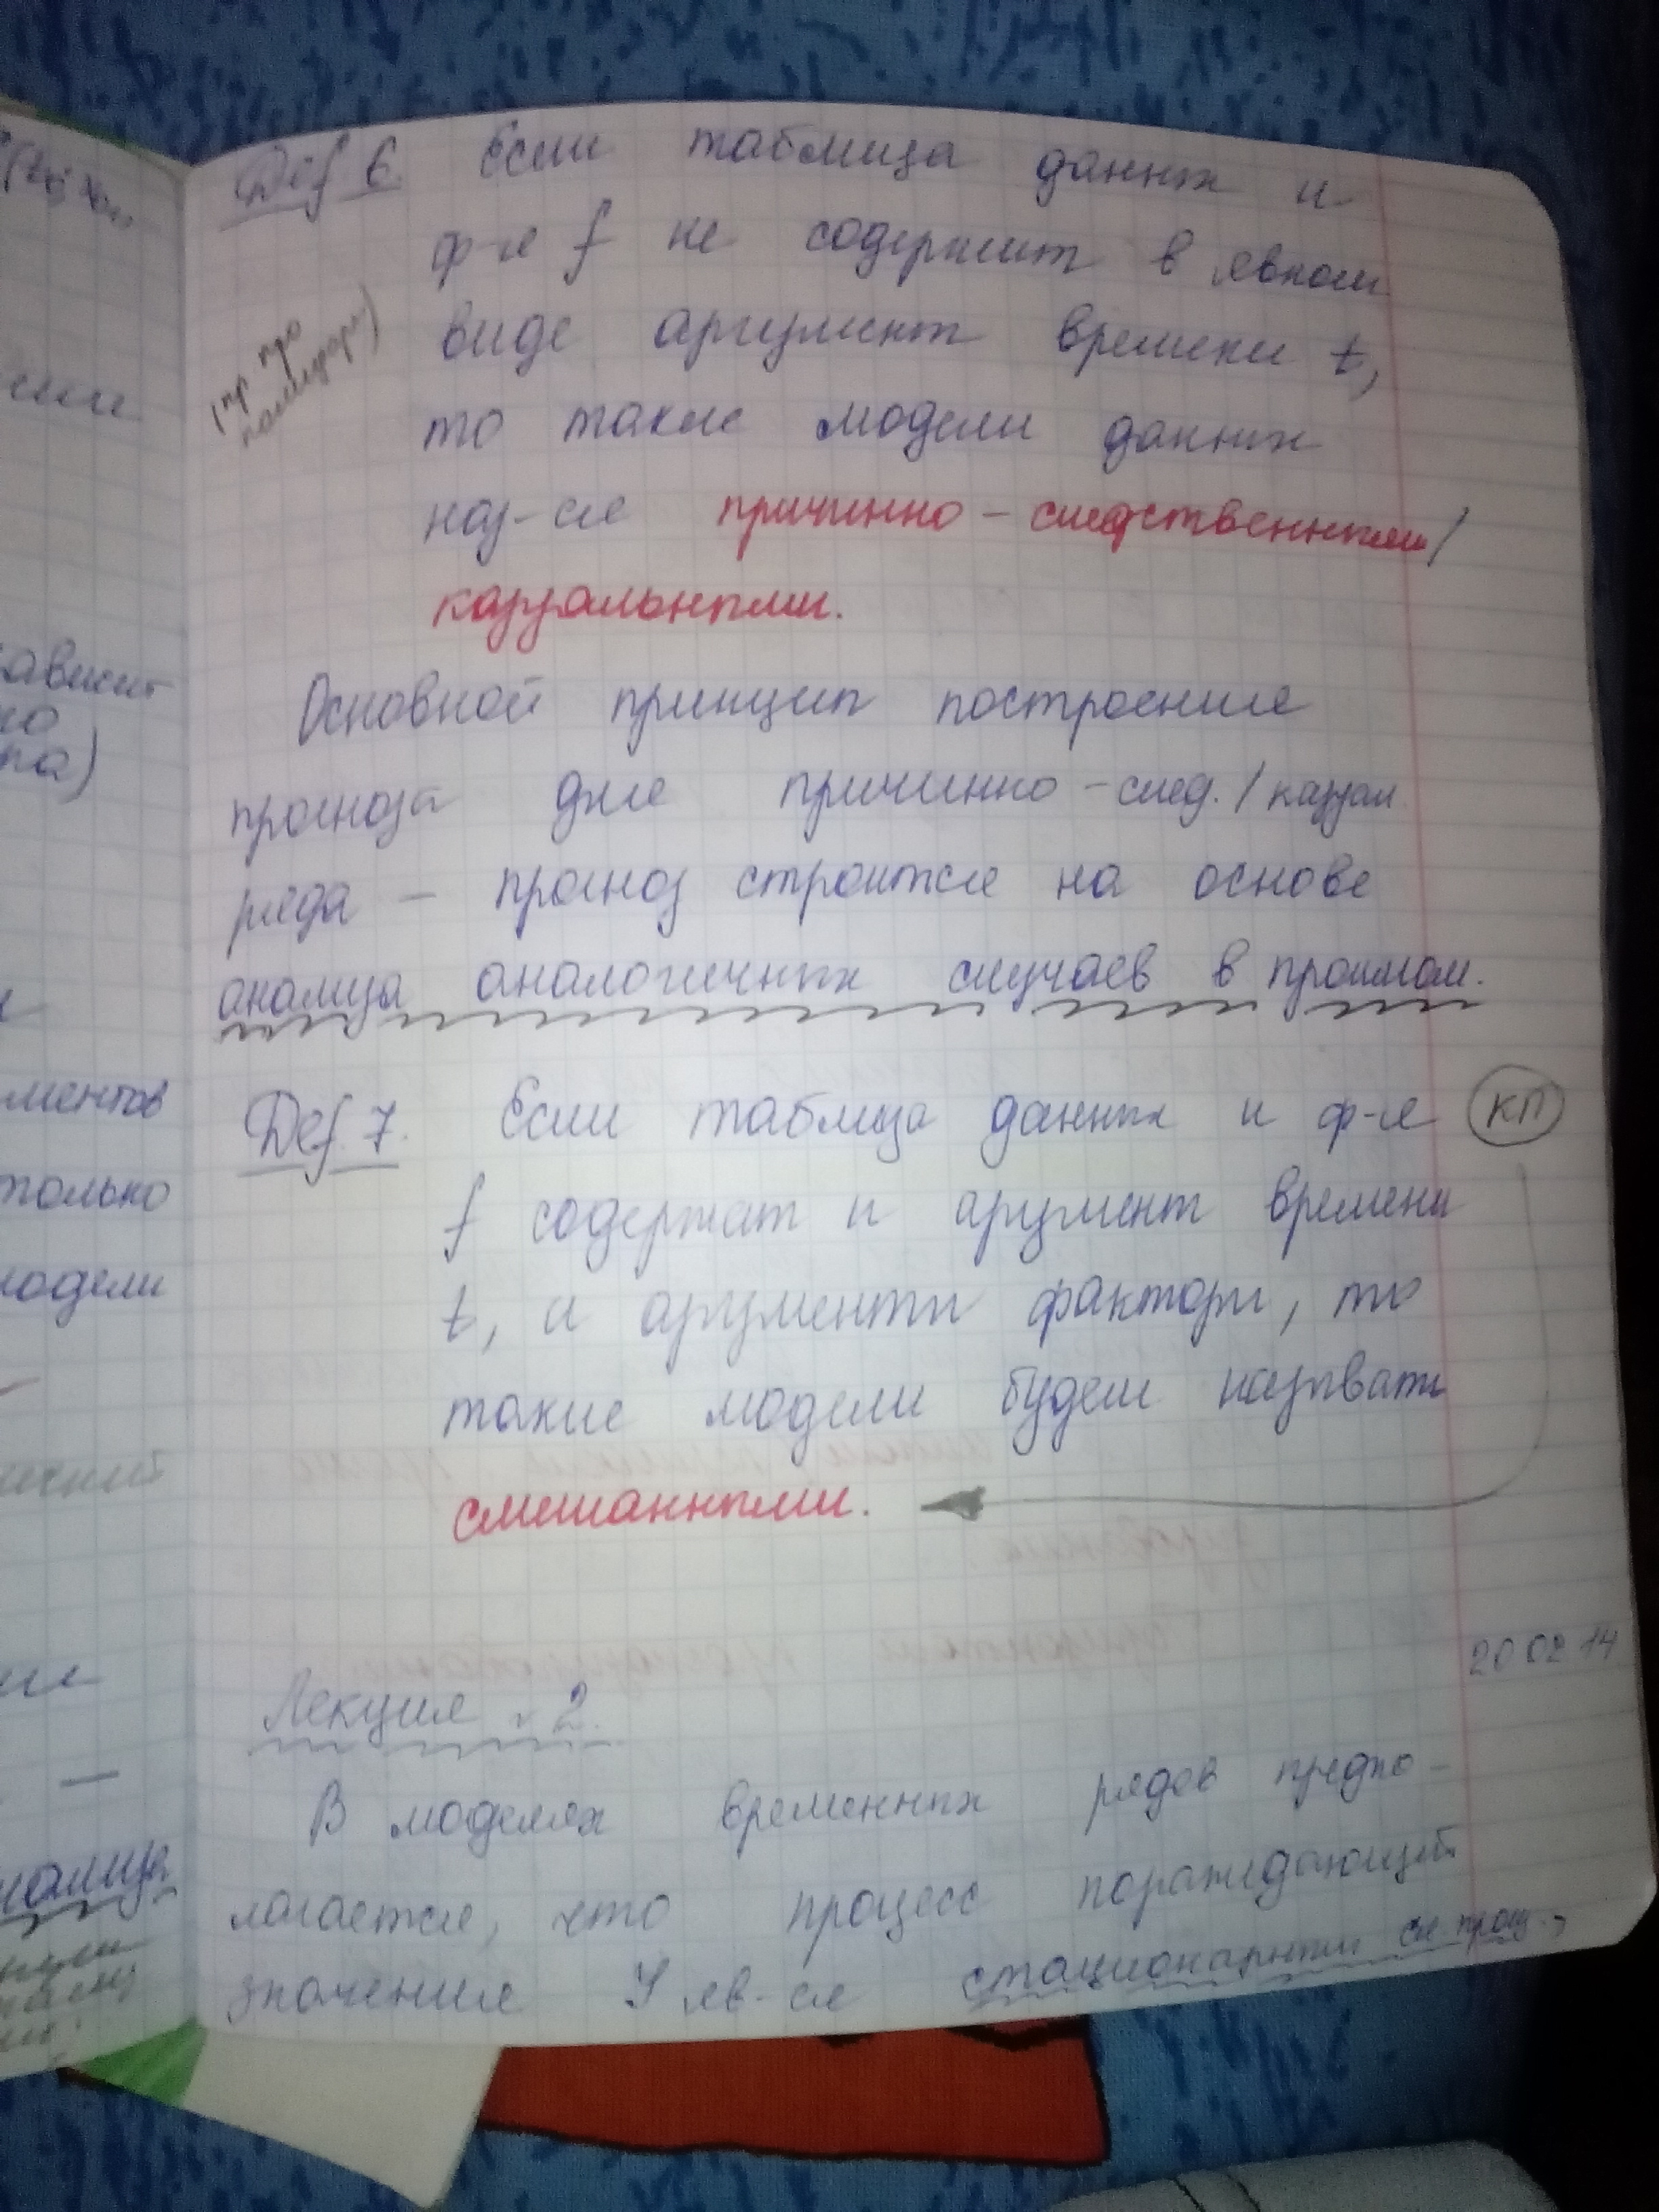 Def 6. Если таблица данных и
ф-я f не содержит в явном
виде аргумент времени t,
(пр. про
помидоры)
то такие модели данных
наз-ся причинно-следственными/
каузальными.
Основной принцип построения
прогноза для причинно-след./каузал.
ряда – прогноз строится на основе
анализа аналогичных случаев в прошлом.
Def. 7. Если таблица данных и ф-я
КП
f содержат и аргумент времени
t, и аргументы факторы, то
такие модели будем называть
смешанными.
20 02 14
Лекция 2.
В моделях временных рядов предпо-
лагается, что процесс пораждающий
значения Y яв-ся стационарным сл. проц.,
ависит
но
та)
ментов
только
модели
нализа